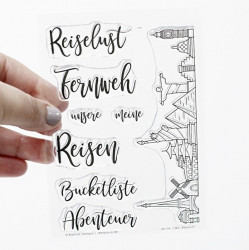 Reiselust
Fernweh
unsere meine
Reisen
Bucketliste
Abenteuer